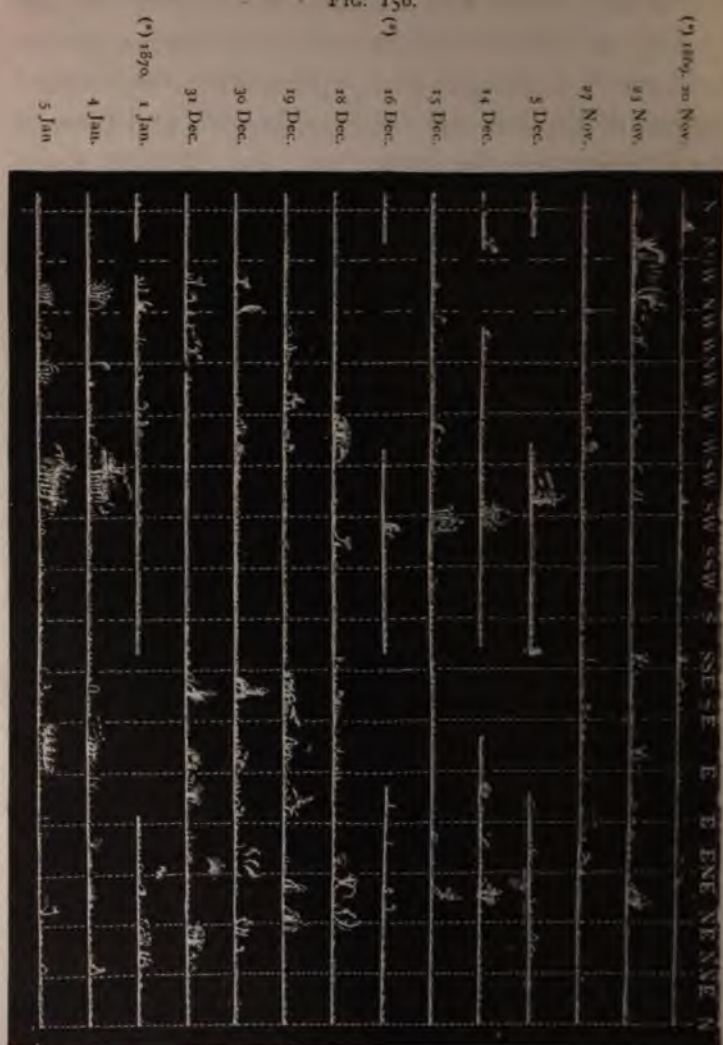 FIG. 156.
N NNW NW WNW W WSW SW SSW S SSE SE E E ENE NE NNE N
(*) 1869. 20 Nov.
23 Nov.
27 Nov.
5 Dec.
14 Dec.
15 Dec.
(*) 16 Dec.
18 Dec.
19 Dec.
30 Dec.
31 Dec.
(*) 1870. 1 Jan.
4 Jan.
5 Jan